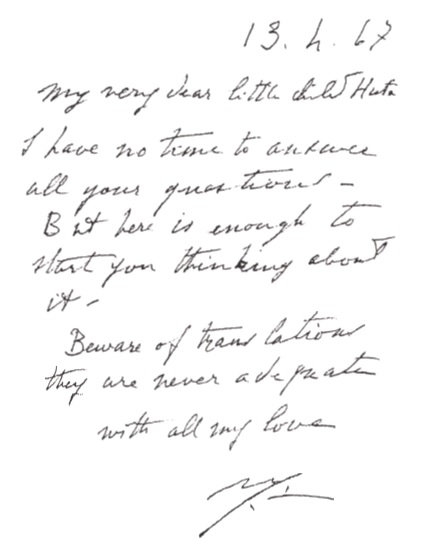 13.4.67
My very dear little child Huta
I have no time to answer
all your questions -
But here is enough to
start you thinking about
it -
Beware of translations
they are never adequate
with all my love